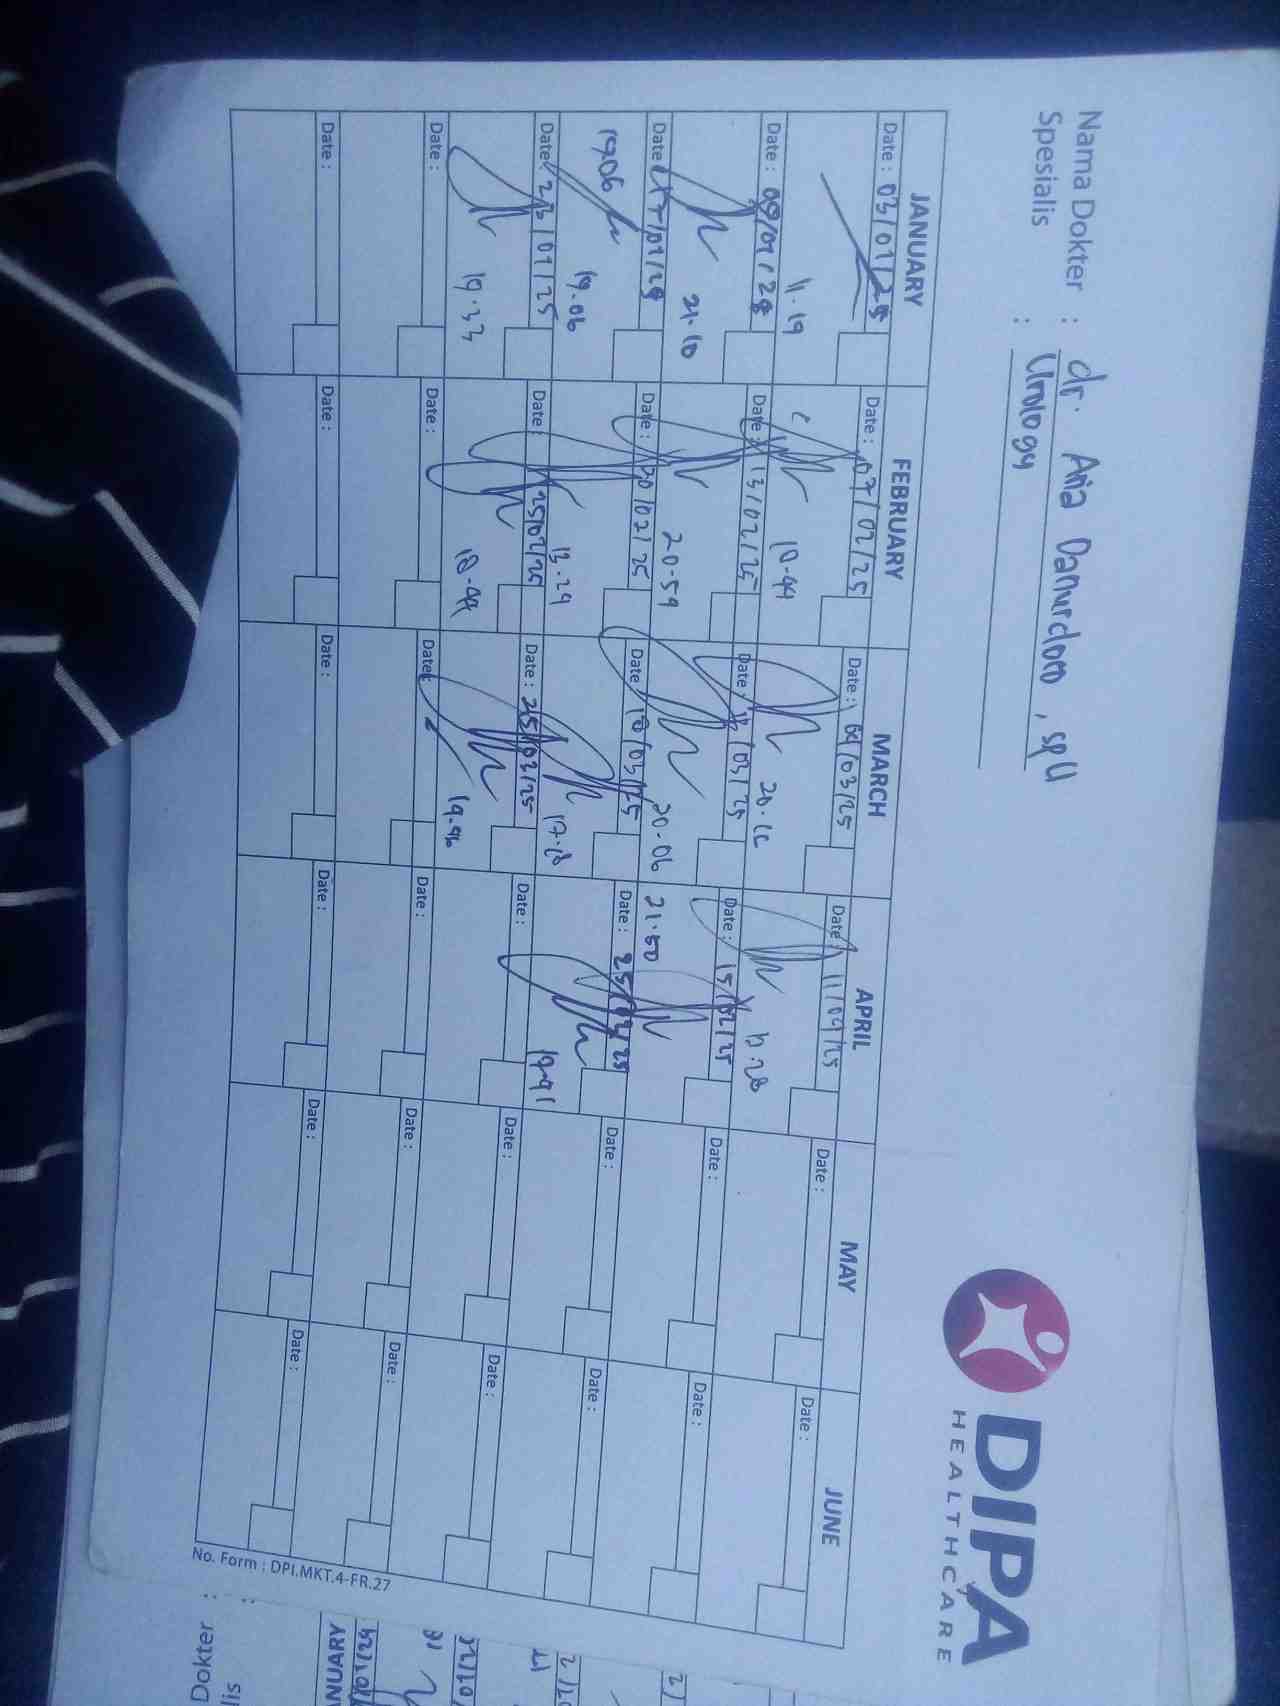 Nama Dokter : dr. Aria Danurdoro, SpU
Spesialis : Urology
DIPA
HEALTHCARE
JANUARY FEBRUARY MARCH APRIL MAY JUNE
Date : 03/01/25 Date : 07/02/25 Date : 04/03/25 Date : 11/04/25 Date : Date :
11.19 18.44 20.12 12.28
Date : 09/01/25 Date : 13/02/25 Date : 12/03/25 Date : 15/02/25 Date : Date :
21.10 20.59 20.06 21.50
Date : 17/01/25 Date : 20/02/25 Date : 18/03/25 Date : 25/02/25 Date : Date :
19.06 19.06 13.29 17.18 19.41
Date : 23/01/25 Date : 25/02/25 Date : 25/03/25 Date : Date : Date :
19.33 18.44 19.46
Date : Date : Date : Date : Date : Date :
Date : Date : Date : Date : Date : Date :
No. Form : DPI.MKT.4-FR.27
Dokter :
lis :
NUARY